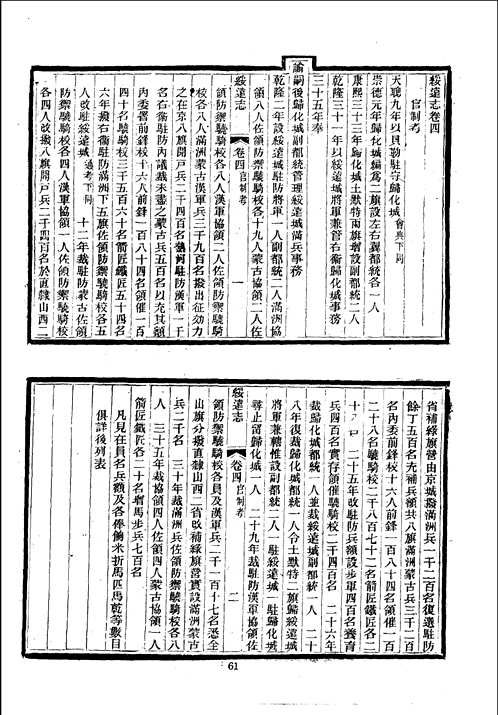 綏遠志卷四
官制考
天聰九年以貝勒駐守歸化城會典下同
崇德元年歸化城編為二旗設左右翼都統各一人
康熙三十三年歸化城土默特兩旗增設副都統二人
乾隆三十一年以綏遠城將軍兼管右衛歸化城事務
三十五年奉
諭嗣後歸化城副都統管理綏遠城滿兵事務
乾隆二年設綏遠城駐防將軍一人副都統二人滿洲協
領八人佐領防禦驍騎校各四十九人蒙古協領二人佐
綏遠志
卷四官制考
一
領防禦驍騎校各八人漢軍協領二人佐領防禦驍騎
校各八人滿洲蒙古漢軍兵三千九百名撥出征効力
之在京八旗開戶兵二千四百名熱河駐防漢軍一千
名右衛駐防內議裁未盡之蒙古兵五百名以充其額
內委署前鋒校十六人前鋒一百八十四名領催一百
四十名驍騎校三千五百六十名箭匠鐵匠五十四名
六年撥右衛駐防滿洲下五旗佐領防禦驍騎校各五
人改駐綏遠城通考下同 十二年裁駐防蒙古佐領
防禦驍騎校各四人漢軍協領一人佐領防禦驍騎校
各四人改撥八旗開戶兵二千四百名於直隸山西二
省補綠旗營由京城撥滿洲兵一千二百名復選駐防
餘丁五百名充補兵額共八旗滿洲蒙古兵三千二百
名內委前鋒校十六人前鋒一百八十四名領催一百
二十八名驍騎校二千八百七十二名箭匠鐵匠各二
十 二十五年改駐防兵額設步軍四百名養育
兵四百名實存領催驍騎校二千四百名 二十六年
裁歸化城都統一人並裁綏遠城副都統一人 二十
八年復裁歸化城都統一人令土默特二旗歸綏遠城
將軍兼轄惟設副都統二人一駐綏遠城一駐歸化城
尋止留歸化城一人 二十九年裁駐防漢軍協領佐
綏遠志
卷四官制考
二
領防禦驍騎校各員及漢軍兵二千一百十七名悉令
出旗分撥直隸山西二省改補綠旗營實設滿洲蒙古
兵二千名 三十年裁滿洲兵佐領防禦驍騎校各八
人 三十五年裁協領四人佐領四人蒙古協領一人
箭匠鐵匠各二十名增馬步兵七百名
凡見在員名兵額及各俸餉米折馬匹馬乾等數目
俱詳後列表
61